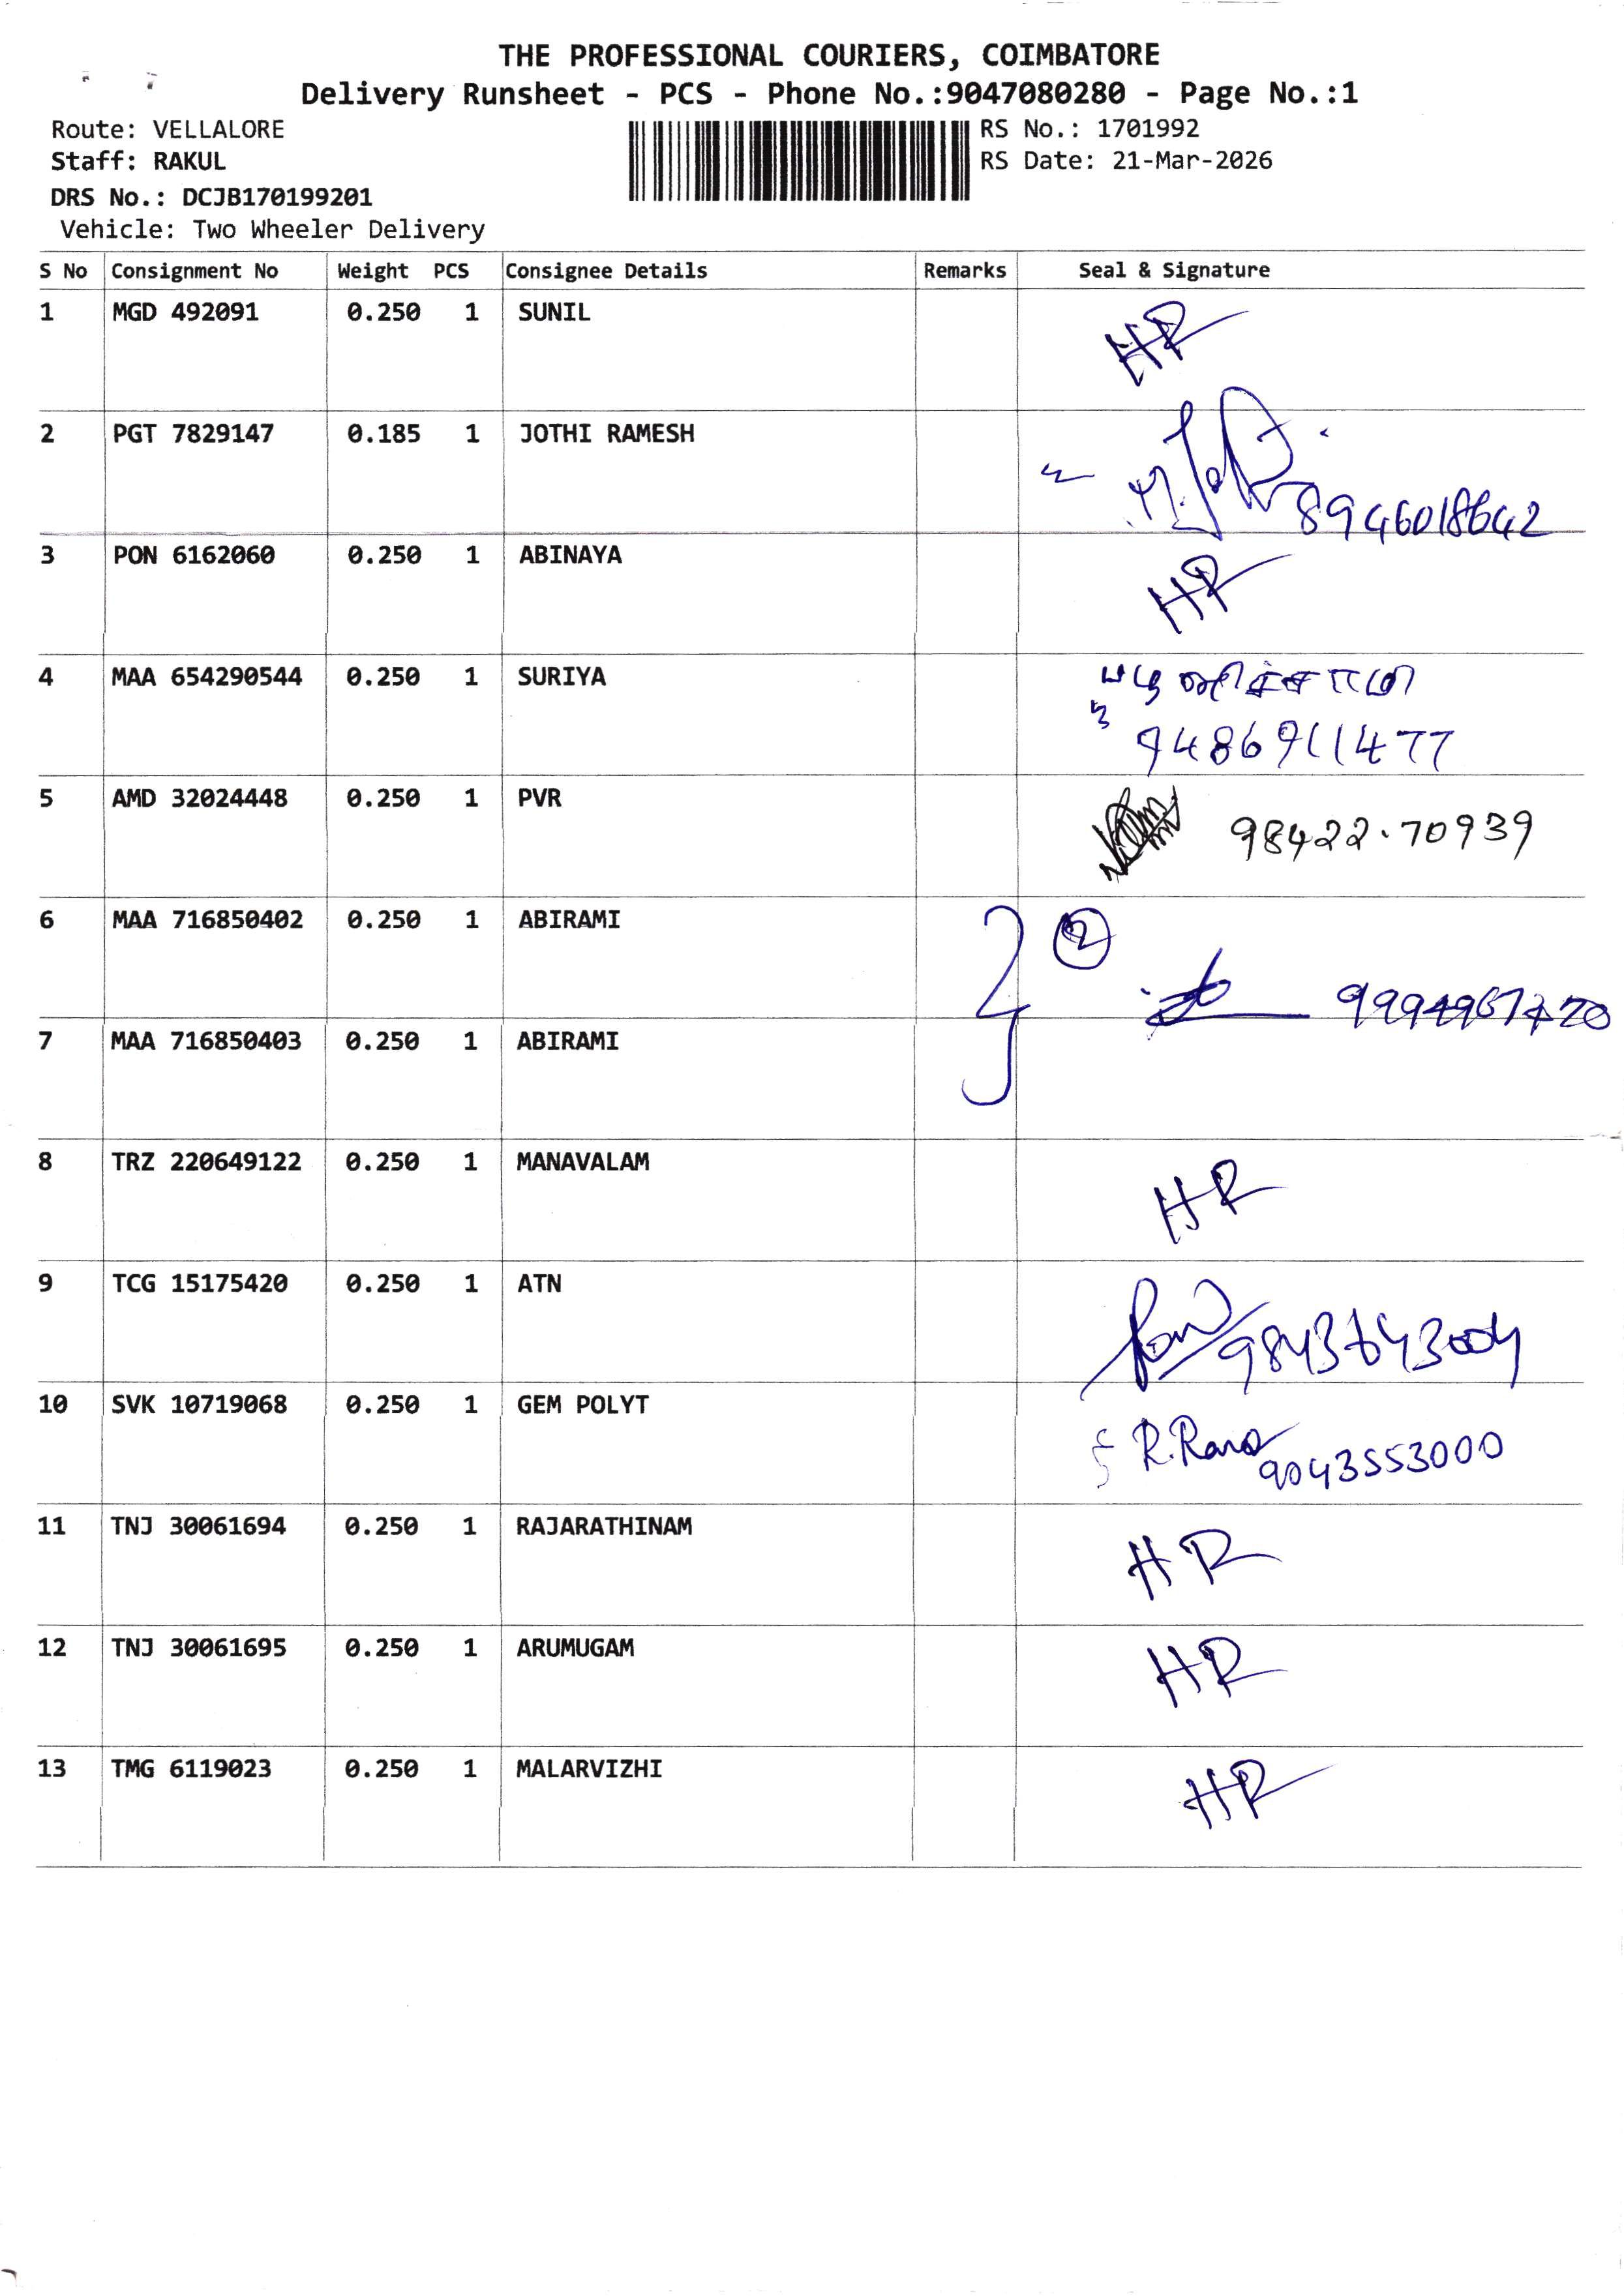 THE PROFESSIONAL COURIERS, COIMBATORE
Delivery Runsheet - PCS - Phone No.:9047080280 - Page No.:1
Route: VELLALORE
RS No.: 1701992
Staff: RAKUL
RS Date: 21-Mar-2026
DRS No.: DCJB170199201
Vehicle: Two Wheeler Delivery
S No Consignment No Weight PCS Consignee Details Remarks Seal & Signature
1 MGD 492091 0.250 1 SUNIL HR
2 PGT 7829147 0.185 1 JOTHI RAMESH
8946018642
3 PON 6162060 0.250 1 ABINAYA HR
4 MAA 654290544 0.250 1 SURIYA
9486911477
5 AMD 32024448 0.250 1 PVR 98422.70939
6 MAA 716850402 0.250 1 ABIRAMI 2
7 MAA 716850403 0.250 1 ABIRAMI
8 TRZ 220649122 0.250 1 MANAVALAM HR
9 TCG 15175420 0.250 1 ATN
10 SVK 10719068 0.250 1 GEM POLYT
9043553000
11 TNJ 30061694 0.250 1 RAJARATHINAM HR
12 TNJ 30061695 0.250 1 ARUMUGAM HR
13 TMG 6119023 0.250 1 MALARVIZHI HR